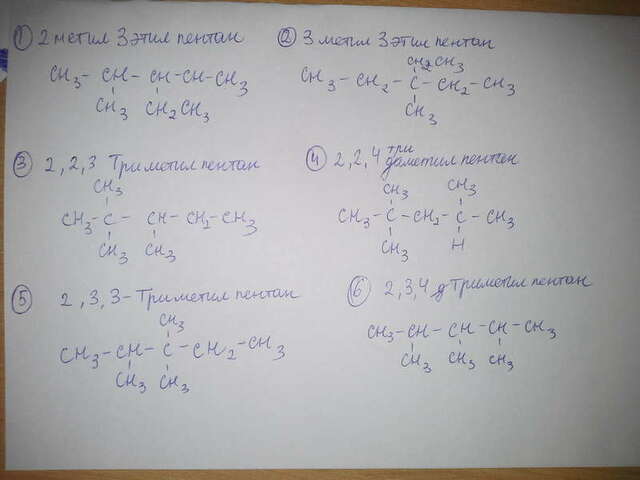 ① 2 метил 3 этил пентан
CH3 - CH - CH - CH - CH3
CH3 CH2CH3
② 3 метил 3 этил пентан
CH2CH3
CH3 - CH2 - C - CH2 - CH3
CH3
③ 2, 2, 3 Триметил пентан
CH3
CH3 - C - CH - CH2 - CH3
CH3 CH3
④ 2, 2, 4 три метил пентан
CH3 CH3
CH3 - C - CH2 - C - CH3
CH3 H
⑤ 2, 3, 3 - Триметил пентан
CH3
CH3 - CH - C - CH2 - CH3
CH3 CH3
⑥ 2, 3, 4 Триметил пентан
CH3 - CH - CH - CH - CH3
CH3 CH3 CH3